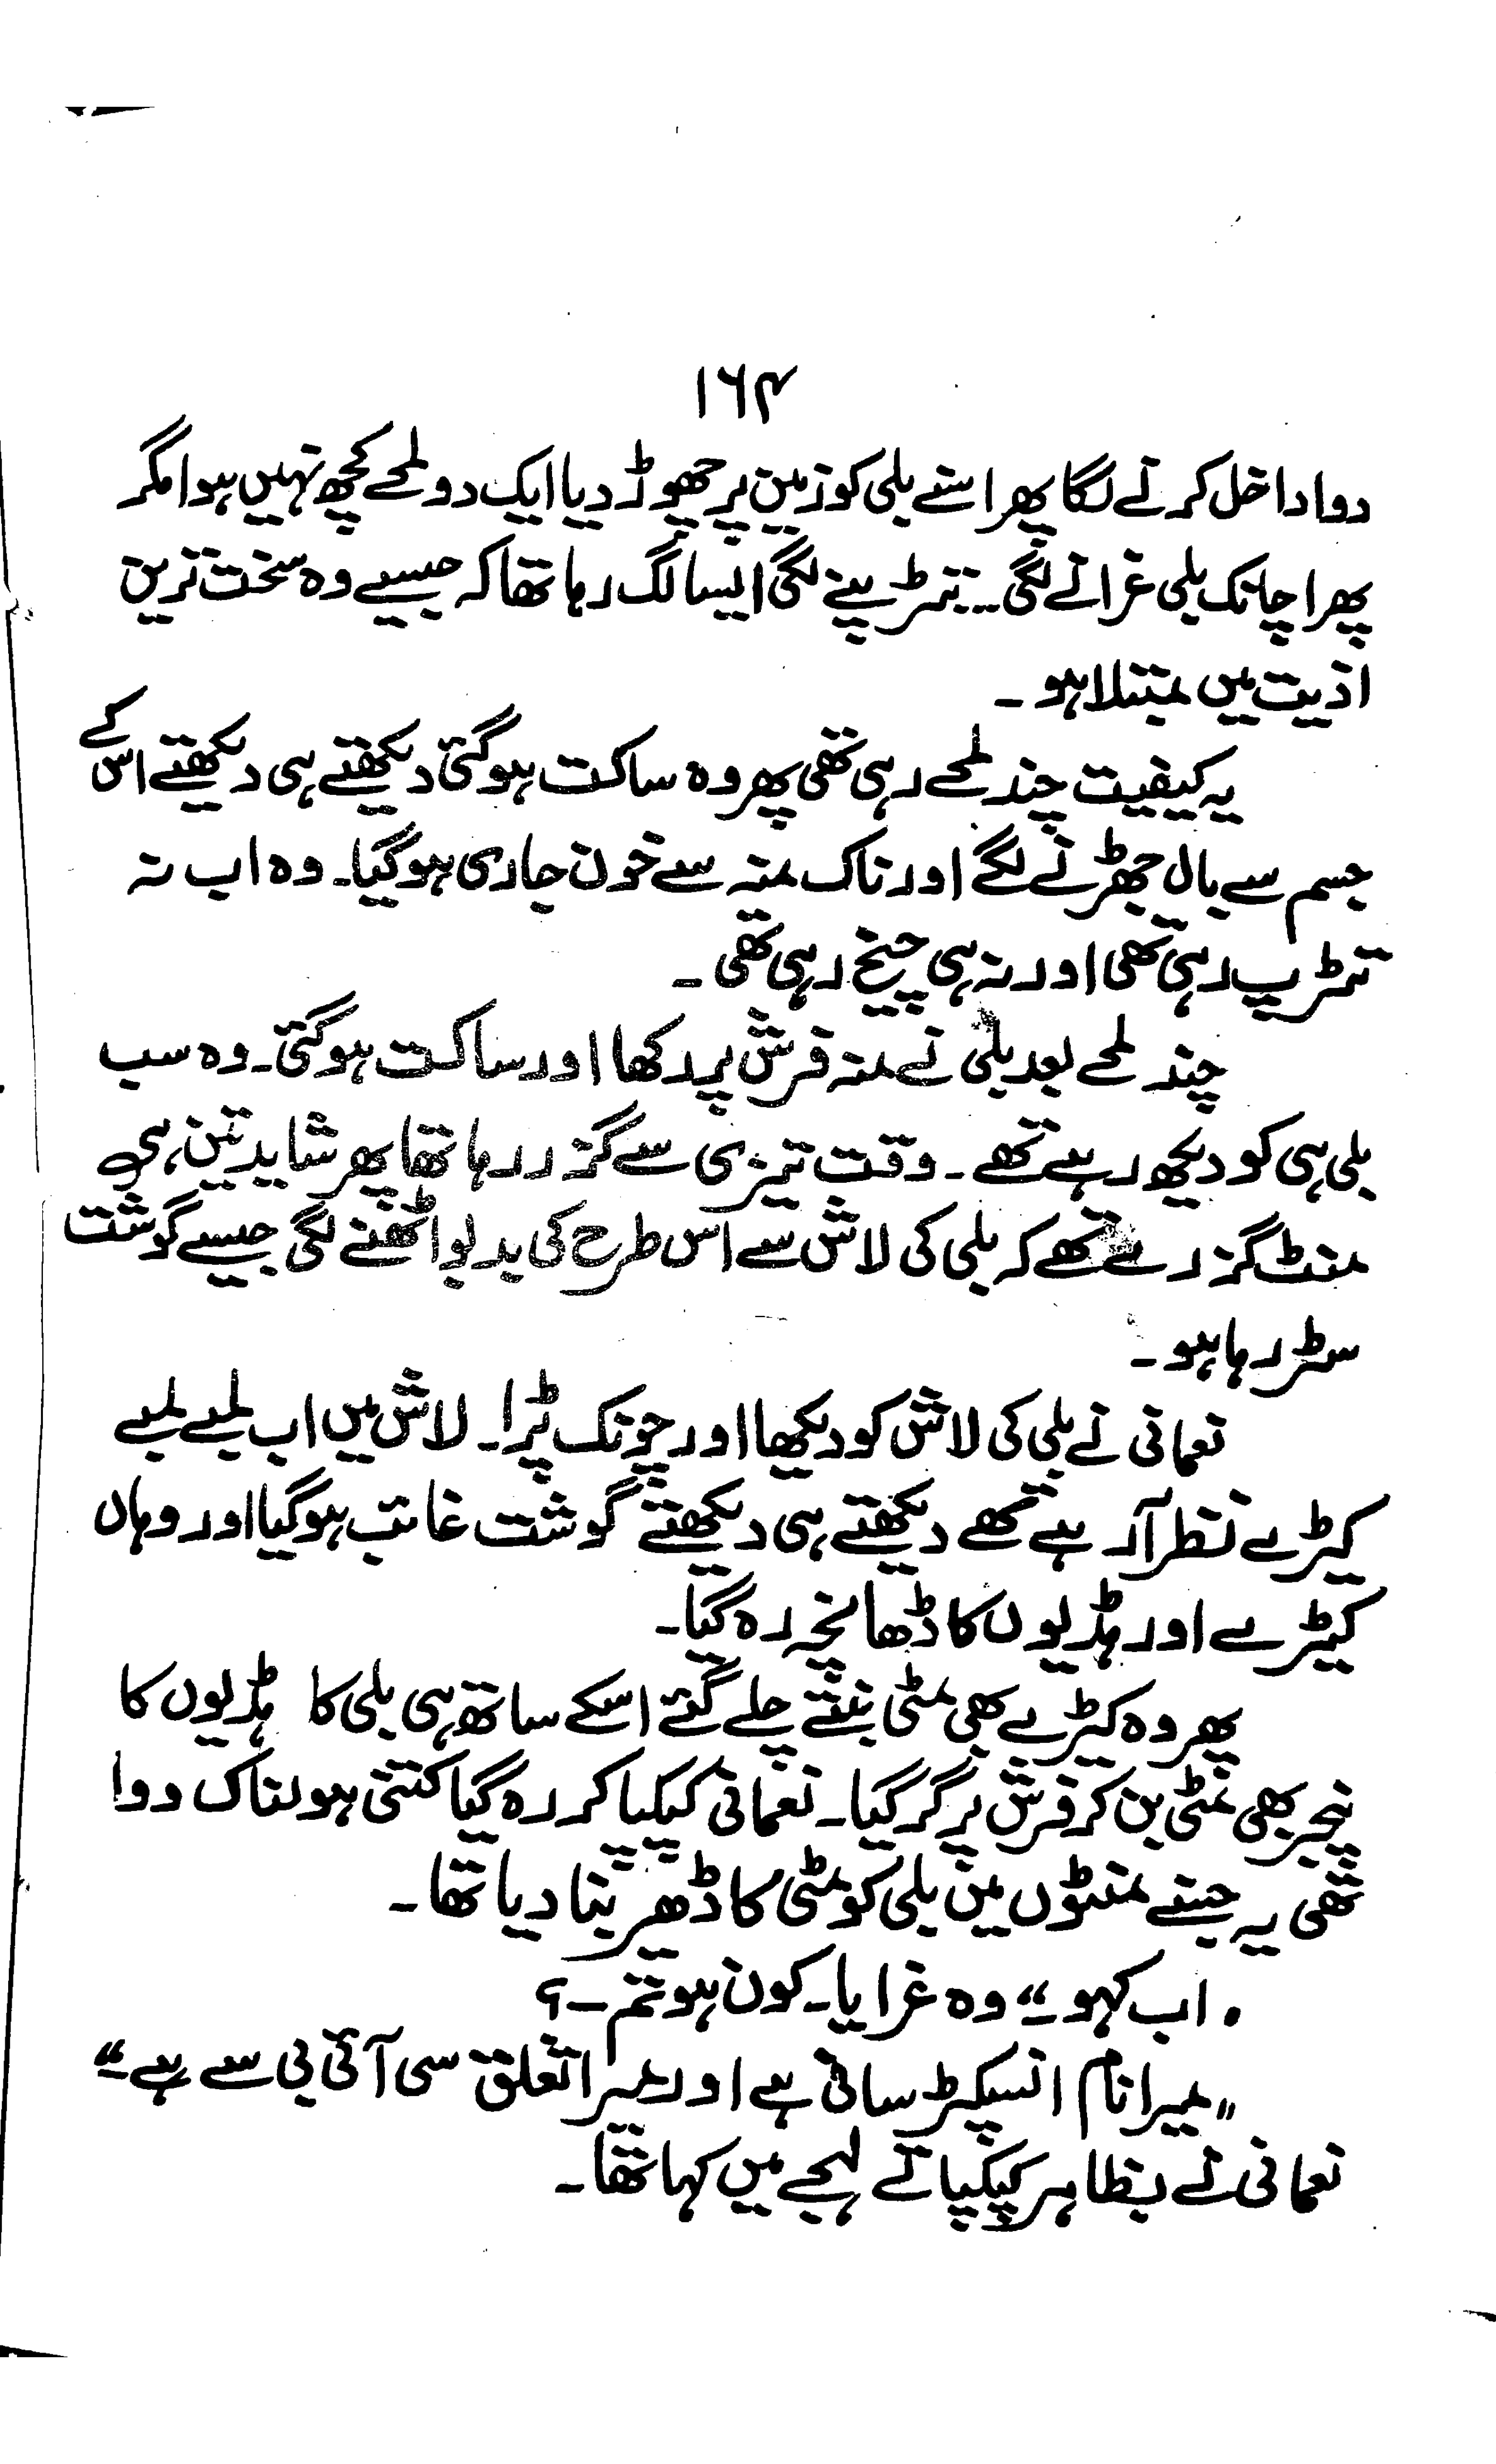 ۱۶۴
دوا داخل کرنے لگا پھر اسنے بلی کو زمین پر چھوڑ دیا ایک دو لمحے کچھ نہیں ہوا مگر
پھر اچانک بلی غرانے لگی ۔۔ تڑپنے لگی ایسا لگ رہا تھا کہ جیسے وہ سخت ترین
اذیت میں مبتلا ہو ۔
یہ کیفیت چند لمحے رہی تھی پھر وہ ساکت ہوگئی دیکھتے ہی دیکھتے اس کے
جسم سے بال جھڑنے لگے اور ناک منہ سے خون جاری ہوگیا۔ وہ اب نہ
تڑپ رہی تھی اور نہ ہی چیخ رہی تھی ۔
چند لمحے بعد بلی نے منہ فرش پر رکھا اور ساکت ہوگئی۔ وہ سب
بلی ہی کو دیکھ رہے تھے ۔ وقت تیزی سے گزر رہا تھا پھر شاید تین ہی
منٹ گزرے تھے کہ بلی کی لاش سے اس طرح کی بدبو اٹھنے لگی جیسے گوشت
سڑ رہا ہو ۔
نعمانی نے بلی کی لاش کو دیکھا اور چونک پڑا۔ لاش میں اب لمبے لمبے
کیڑے نظر آرہے تھے دیکھتے ہی دیکھتے گوشت غائب ہوگیا اور وہاں
کیڑے اور ہڈیوں کا ڈھانچہ رہ گیا۔
پھر وہ کیڑے بھی مٹی بنتے چلے گئے اسکے ساتھ ہی بلی کا ہڈیوں کا
پنجر بھی مٹی بن کر فرش پر گر گیا۔ نعمانی کپکپا کر رہ گیا کتنی ہولناک دوا
تھی یہ جسنے منٹوں میں بلی کو مٹی کا ڈھیر بنا دیا تھا ۔
. اب کہو ۔" وہ غرایا۔ کون ہو تم ۔؟
"میرا نام انسپکٹر ساقی ہے اور میرا تعلق سی آئی بی سے ہے ۔"
نعمانی نے بظاہر کپکپاتے لہجے میں کہا تھا ۔